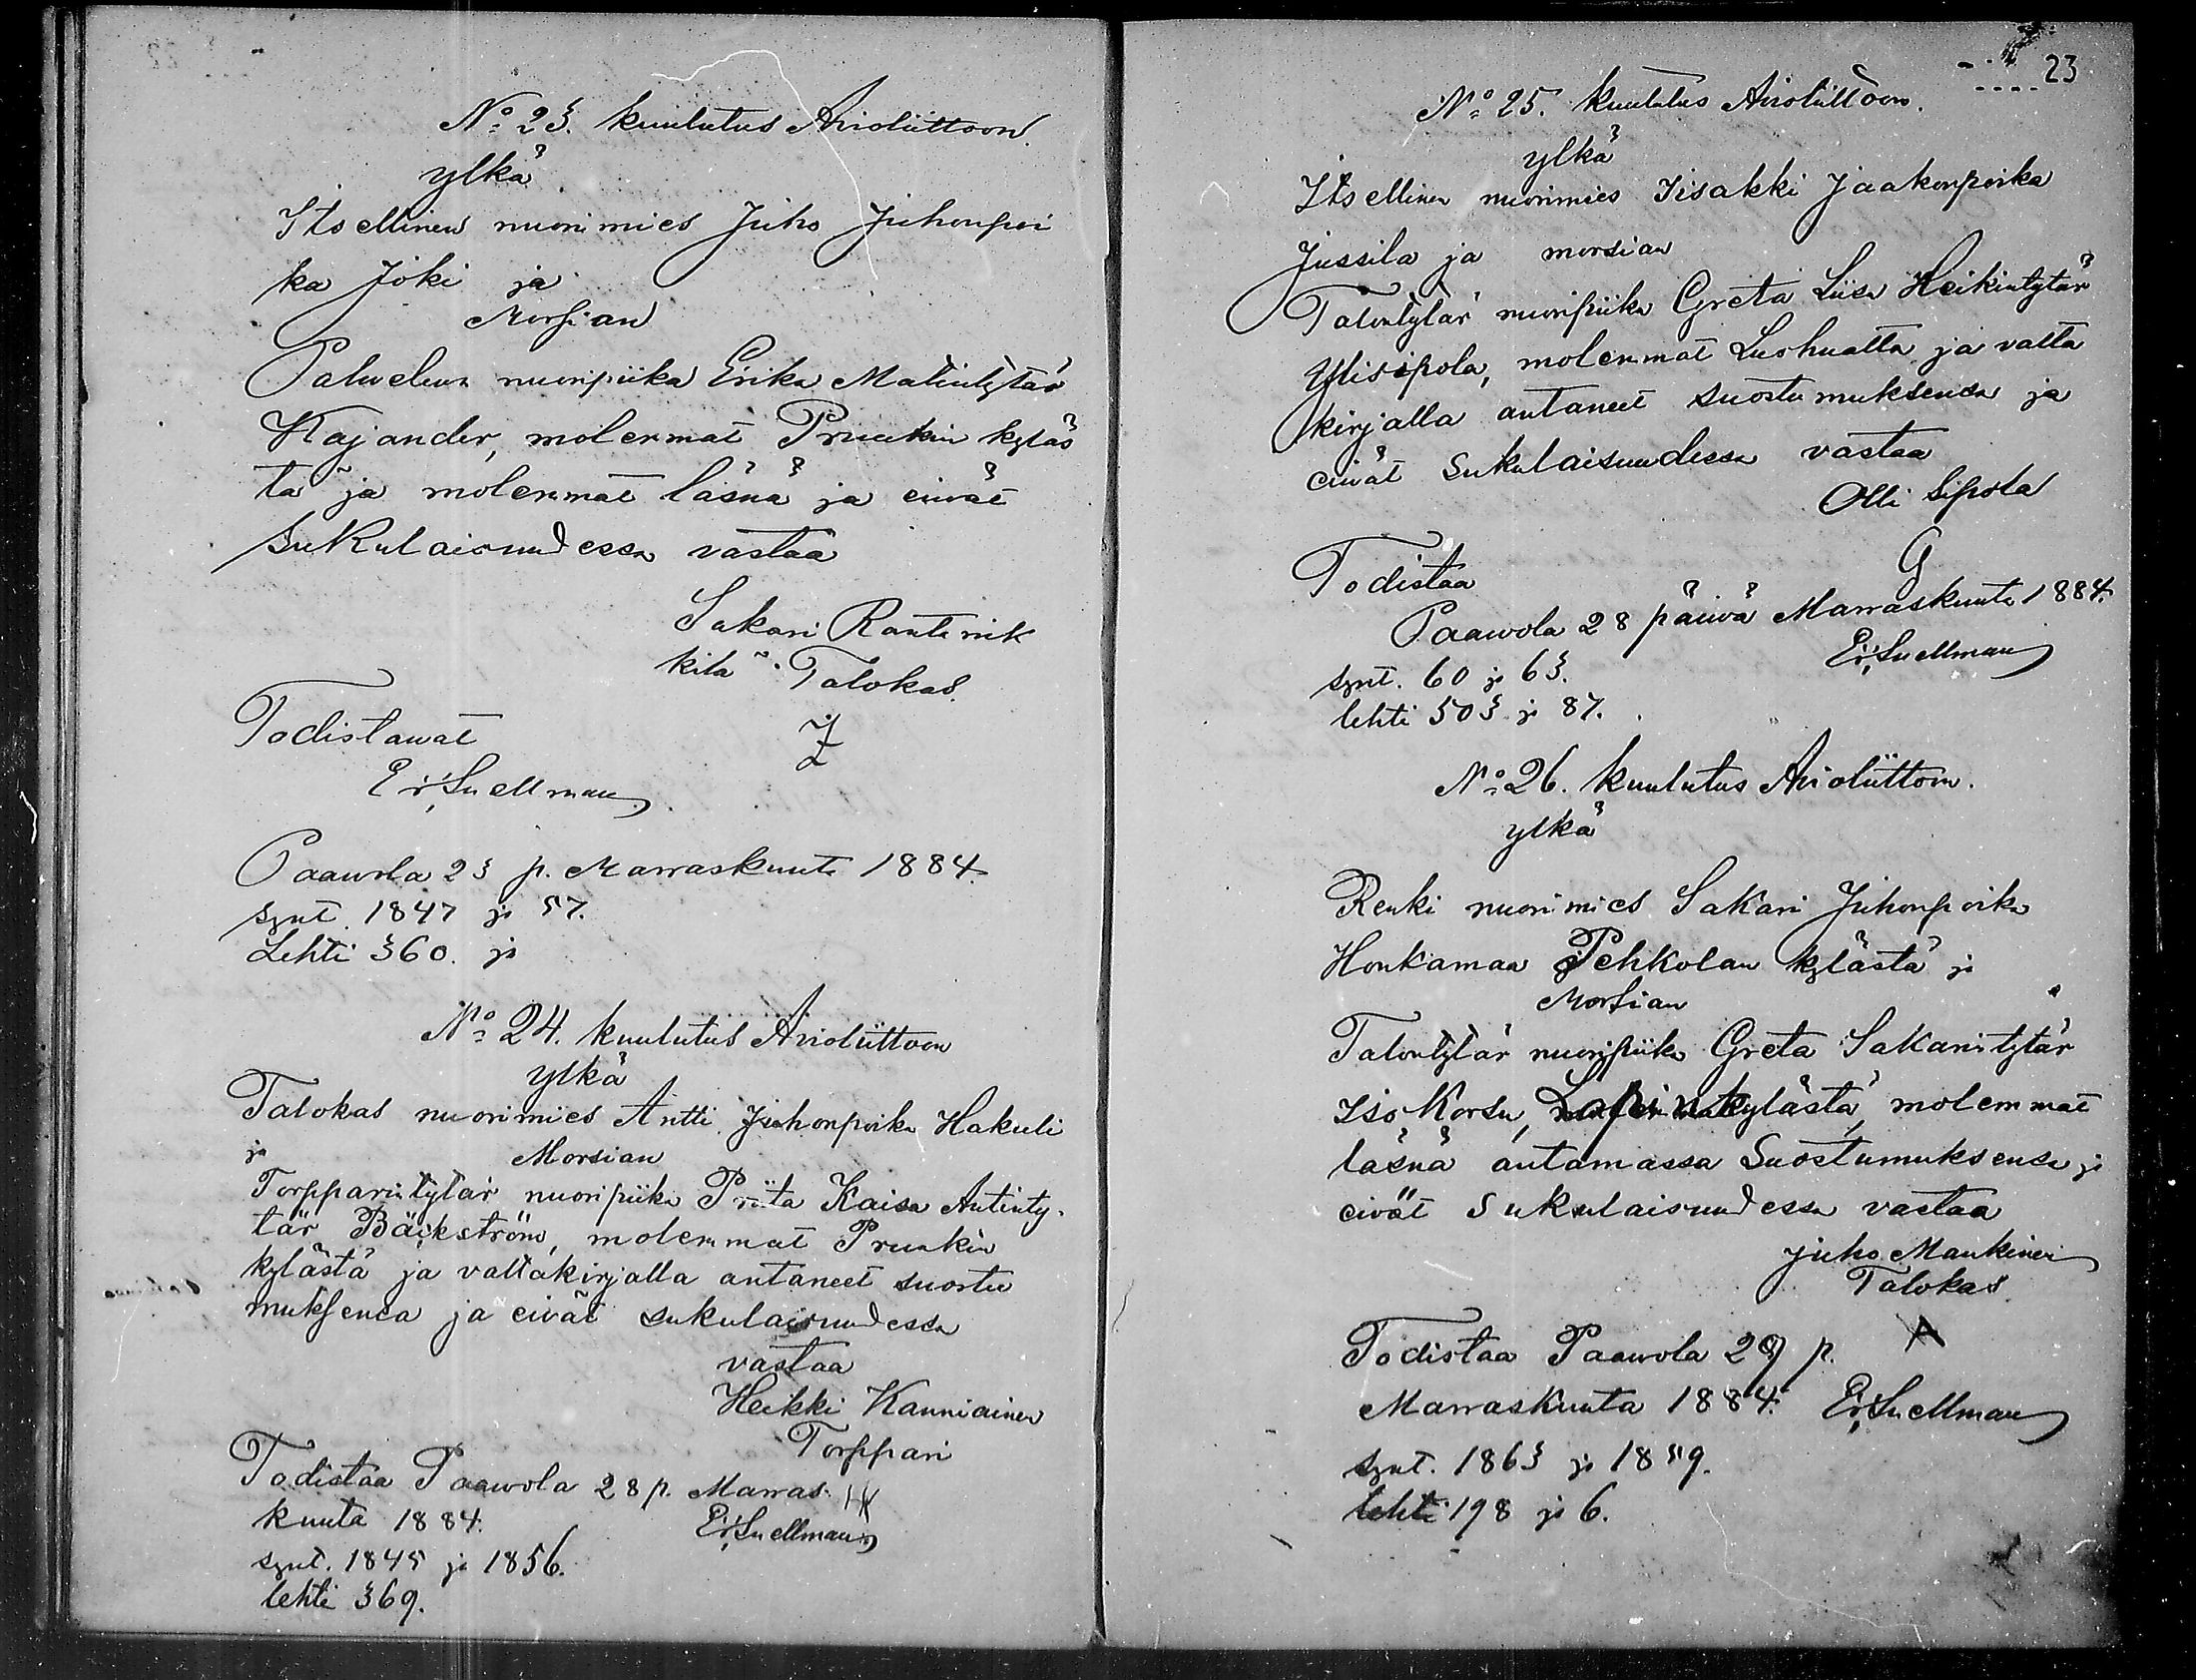 No 23. kuulutus Avioliittoon.
ylkä
Itsellinen nuorimies Juho Juhonpoi
ka Joki ja
Morsian
Palvelus nuoripiika Erika Matintytär
Kajander, molemmat Pruukin kyläs
tä ja molemmat läsnä ja eivät
sukulaisuudessa vastaa
Sakari Rantanik
kilä Talokas.
Todistawat
Er. Snellman
Paawola 23 p. Marraskuuta 1884.
synt. 1847 ja 57.
Lehti 360. ja
No 24. kuulutus Avioliittoon
ylkä
Talokas nuorimies Antti Juhonpoika Hakuli
ja Morsian
Torpparintytär nuoripiika Priita Kaisa Antinty-
tär Bäckström, molemmat Pruukin
kylästä ja valtakirjalla antaneet suostu
muksensa ja eivät sukulaisuudessa
vastaa
Heikki Kanniainen
Torppari
Todistaa Paawola 28 p. Marras
kuuta 1884. Er. Snellman
synt. 1845 ja 1856.
lehti 369.
23
No 25. kuulutus Avioliittoon.
ylkä
Itsellinen nuorimies Iisakki Jaakonpoika
Jussila ja morsian
Talontytär nuoripiika Greta Liisa Heikintytär
Ylisipola, molemmat Luohualta ja valta
kirjalla antaneet suostumuksensa ja
eivät sukulaisuudessa vastaa
Olli Sipola
Todistaa
Paawola 28 päivä Marraskuuta 1884.
Er. Snellman
synt. 60 ja 63.
lehti 503 ja 87.
No 26. kuulutus Avioliittoon.
ylkä
Renki nuorimies Sakari Juhonpoika
Honkamaa Pehkolan kylästä ja
Morsian
Talontytär nuoripiika Greta Sakarintytär
Iso Korsu, Lapinkylästä, molemmat
läsnä antamassa Suostumuksensa ja
eivät sukulaisuudessa vastaa
Juho Mankinen
Talokas
Todistaa Paawola 29 p.
Marraskuuta 1884. Er. Snellman
synt. 1863 ja 1859.
lehti 198 ja 6.